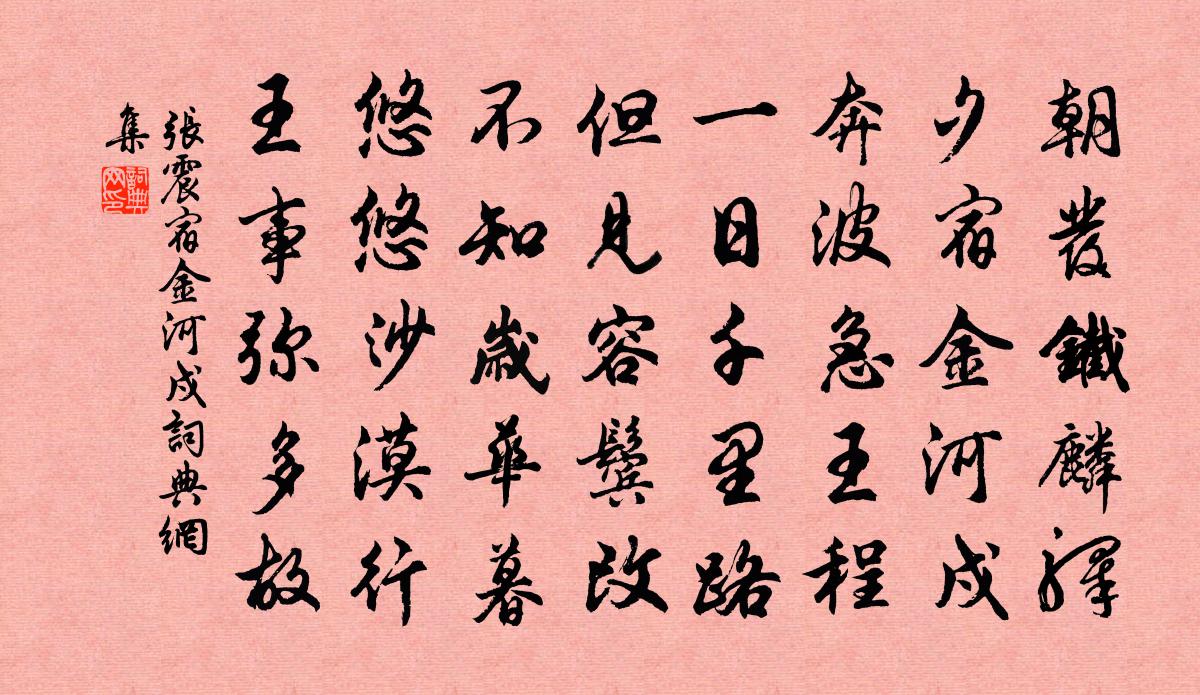 朝發鐵麟驛
夕宿金河戍
奔波急王程
一日千里路
但見容鬢改
不知歲華暮
悠悠沙漠行
王事弥多故
張震宿金河戍詞典網
集
詞典網印